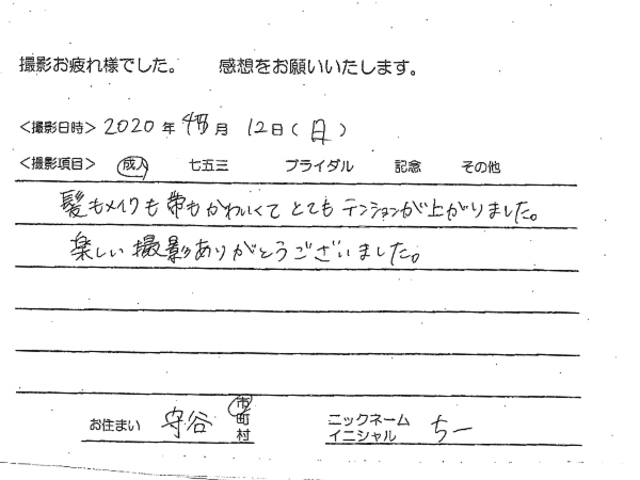 撮影お疲れ様でした。 感想をお願いいたします。
<撮影日時> 2020年 4月 12日(日)
<撮影項目> 成人 七五三 ブライダル 記念 その他
髪もメイクも帯もかわいくてとてもテンションが上がりました。
楽しい撮影ありがとうございました。
お住まい 守谷 市町村 ニックネーム イニシャル ちー